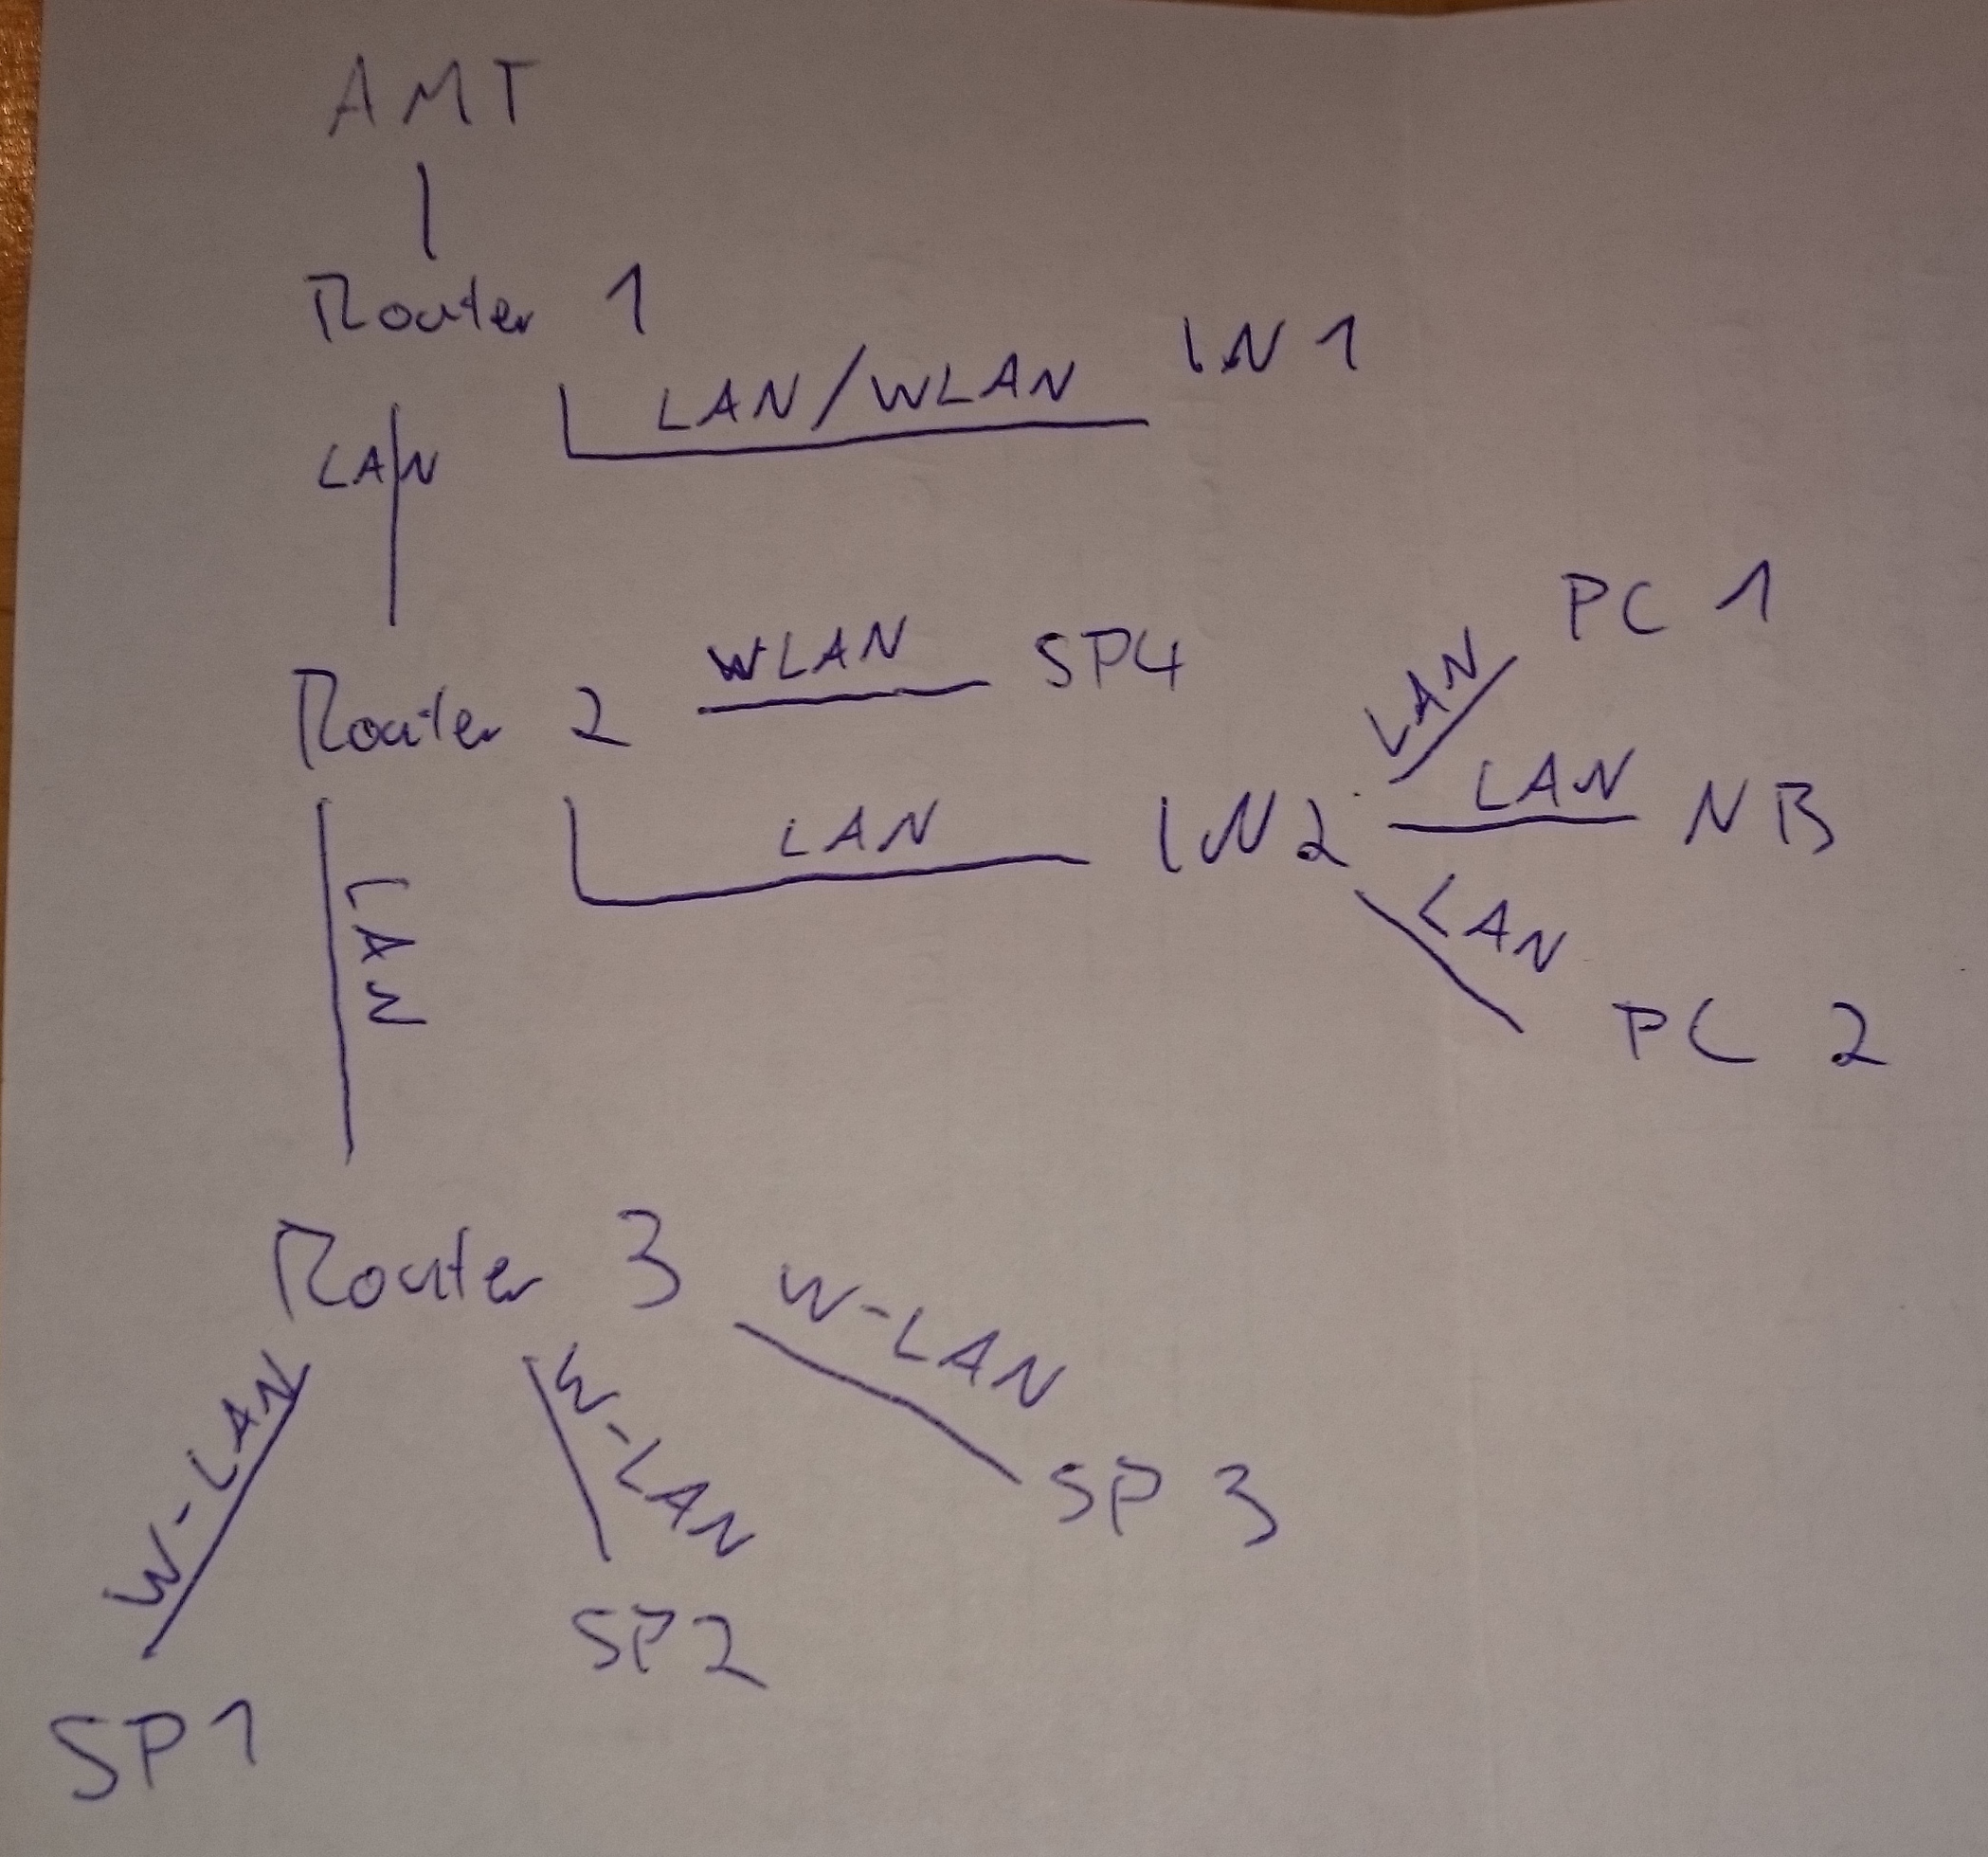 AMT
Router 1
LAN/WLAN IN 1
LAN
PC 1
WLAN SP4
LAN
Router 2
LAN NB
LAN IN2
LAN
LAN
PC 2
Router 3
W-LAN
W-LAN
W-LAN
SP 3
SP2
SP1